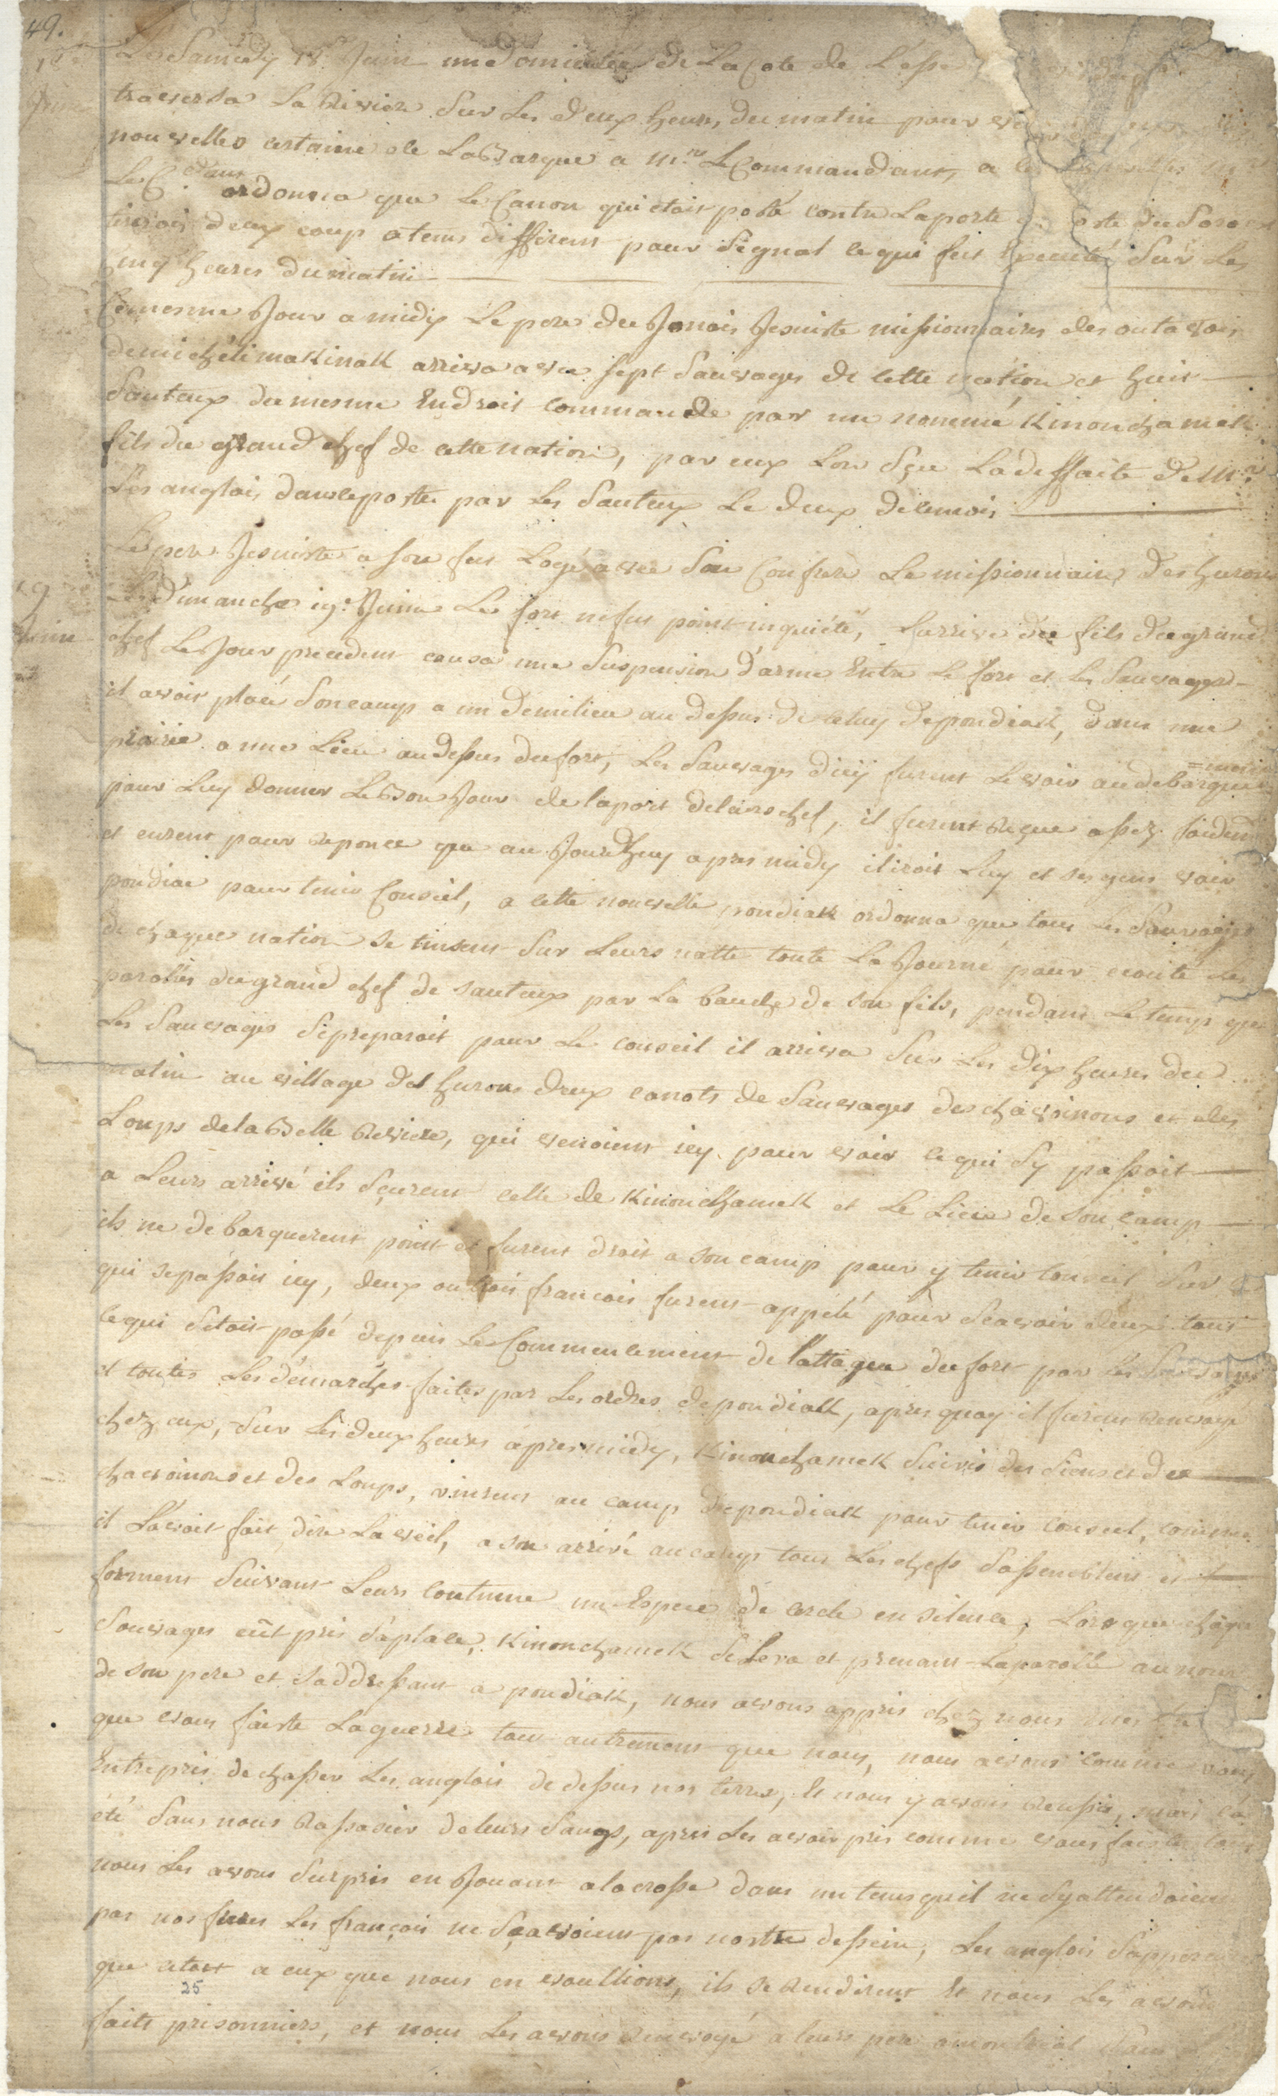 49.
18e Le Samedy 18e Juin un domicilié de La Cote de L'Est
Juin traversa La Riviere Sur Les deux heures du matin pour
nouvelles certaine de La Barque a Mr. Le Commandant, a
Le Cdant ordonna que Le Canon qui etoit posté contre Laporte
tiroit deux coup a tems different pour Signal ce qui fut Executé Sur Les
Cinq heures du matin
Ce mesme Jour a midy Le pere du Jonois Jesuiste missionnaires des outavois
de michélimakinak arriva avec sept Sauvages de cette nation et huit
Sauteux du mesme Endroit commandé par un nommé Kinonchamek
fils du grand chef de cette nation, par eux Lon Sçu La deffaite de Mrs
Les anglois dans le poste par Les Sauteux Le deux de ce mois
Le pere Jesuiste a son fut Logé avec Son Confrere Le missionnaire des hurons
19 Juin Le Dimanche 19e Juin Le fort ne fut point inquiété, Larrivé du fils du grand
chef Le Jour precedent causa une Suspension d'arme Entre Le fort et Les Sauvages
il avoit placé Son camp a un demilieu au dessus de celuy de pondiak, dans une
prairie a une Lieu au dessus du fort, Les Sauvages d'icÿ furent Le voir au debarque
=ment
pour Luy donner Le Bon Jour de la part de leurs chef, il furent Reçue assez froidement
et eurent pour reponce que au Jourdhuy apres midy il iroit Luy et ses gens voir
pondiac pour tenir Conseil, a cette nouvelle pondiak ordonna que tous Les Sauvages
de chaque nation se tinsent Sur Leurs natte toute La Journé pour ecouté Les
parolles du grand chef de sauteux par La bouche de son fils, pendant Le temps que
Les Sauvages Sepreparoit pour Le conseil il arriva Sur Les dix heures du
matin au village des hurons deux canots de Sauvages des chavoinons et des
Loups de la Belle Riviere, qui venoient icy pour voir ce qui Sy passoit
a Leurs arrivé ils Sçurent celle de Kinonchamek et Le Lieu de Son camp
ils ne debarquerent point et furent droit a son camp pour y tenir Conseil Sur ce
qui sepassoit icy, deux ou trois francois furent appelé pour Scavoir deux tout
ce qui Setoit passé depuis Le Commencement de l'attaque du fort par Les Sauvages
et toutes Les démarches faites par Les ordres de pondiak, apres quoy il furent Renvoyé
chez eux, Sur Les deux heures apres midy, Kinonchamek Suivis des Siens et des
chavoinons et des Loups, vinrent au camp de pondiak pour tenir conseil, comme
il L'avoit fait dire La veil, a son arrivé au camp tous Les chefs Sassemblent et
forment Suivant Leurs Coutume une Espece de cercle en silence, Lors que chaque
Sauvages eût pris Sa place, Kinonchamek se Leva et prenant La parolle au nom
de son pere et Saddressant a pondiak, nous avons appris chez nous mes
que vous faiste La guerre tout autrement que nous, nous avons comme vous
Entrepris de chasser Les anglois de dessus nos terres, Et nous y avons Reussis, mais ça
été Sans nous Rassasier de leurs Sangs, apres Les avoir pris comme vous faiste
nous Les avons Surpris en Jouant a la crosse dans un tems quil ne Sy attendoient
pas nos freres Les françois ne Sçavoient pas nostre dessein, Les anglois
que ctoit a eux que nous en voullions, ils se Rendirent Et nous Les avons
25
faits prisonniers, et nous Les avons Renvoyé a leurs pere a montreal